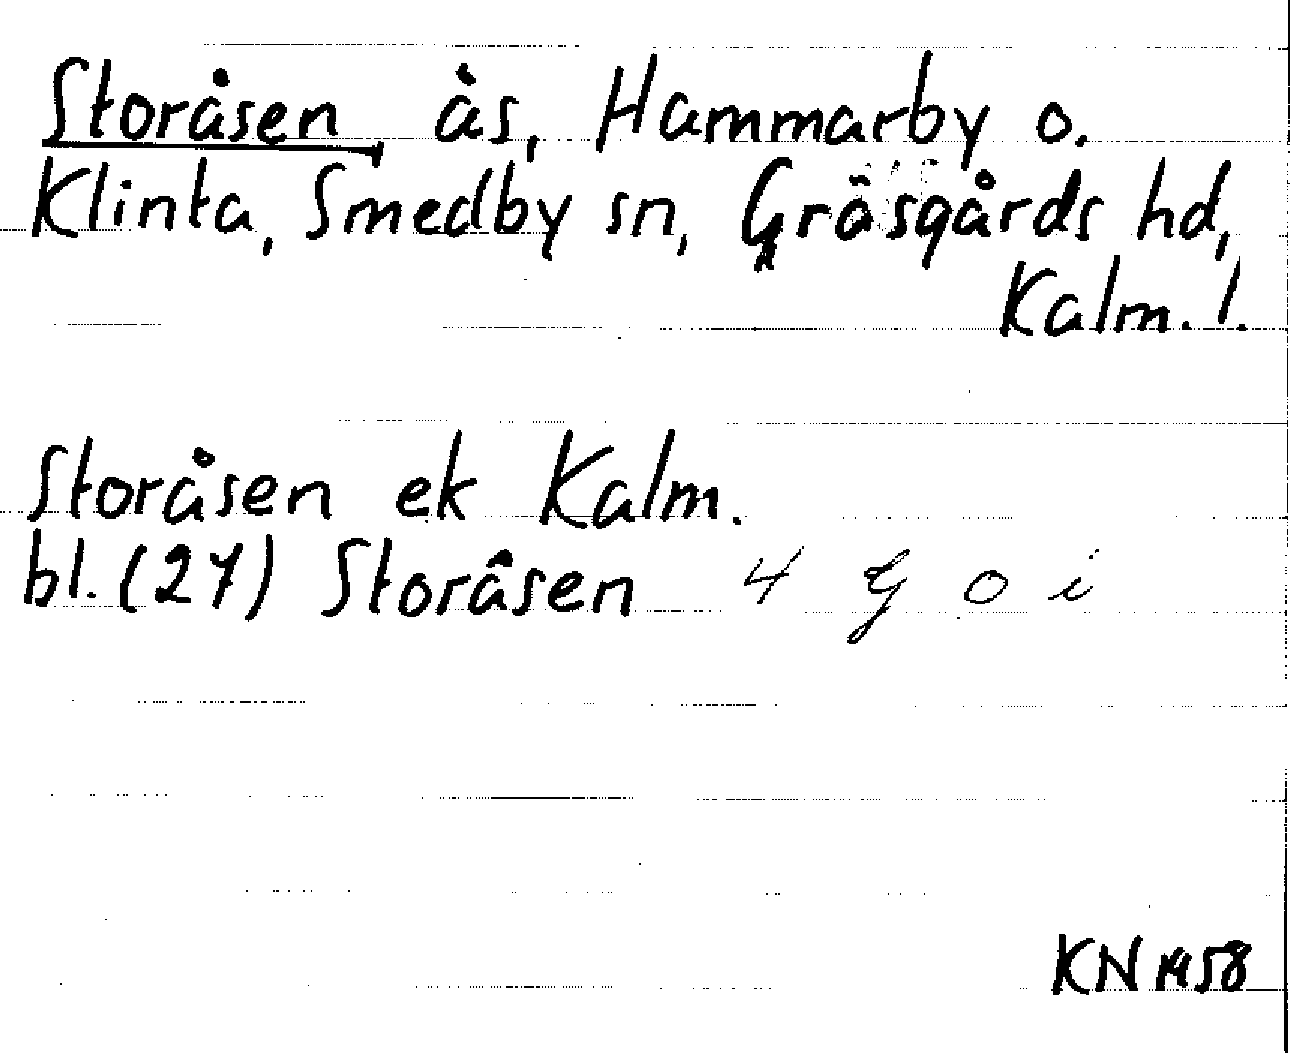 Storåsen, ås, Hammarby o.
Klinta, Smedby sn, Gräsgårds hd,
Kalm. l.
Storåsen ek Kalm.
bl. (27) Storåsen 4 G o i
KN 1958